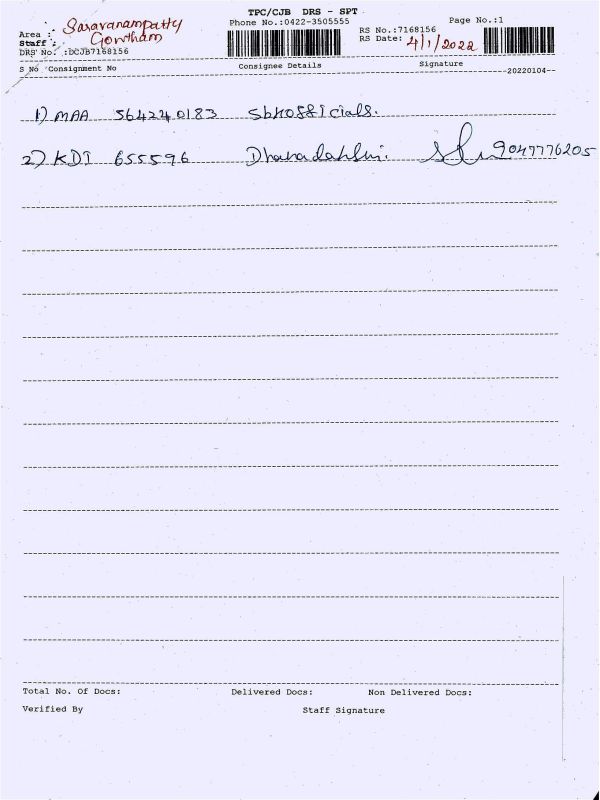 TPC/CJB DRS - SPT
Phone No.:0422-3505555
Page No.:1
Area : Saravanampatty
Staff : Gowtham
DRS No. :DCJB7168156
RS No.:7168156
RS Date: 4/1/2022
S No Consignment No Consignee Details Signature
20220104
1) MAA 564240183
2) KDI 655596 9047776205
Total No. Of Docs: Delivered Docs: Non Delivered Docs:
Verified By Staff Signature